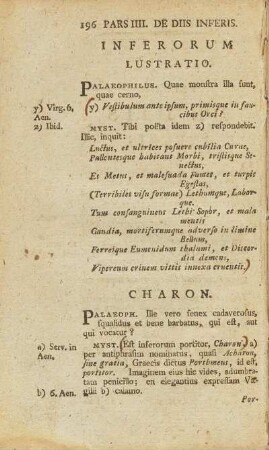 196 PARS IIII. DE DIIS INFERIS.
INFERORUM
LUSTRATIO.
PALAEOPHILUS. Quae monstra illa sunt,
quae cerno,
y) Virg. 6.
Aen.
(y) Vestibulum ante ipsum, primisque in fau-
cibus Orci?
z) Ibid.
MYST. Tibi poëta idem z) respondebit.
Illic, inquit:
Luctus, et ultrices posuere cubilia Curae,
Pallentesque habitant Morbi, tristisque Se-
nectus,
Et Metus, et malesuada Fames, et turpis
Egestas,
(Terribiles visu formae) Lethumque, Labor-
que.
Tum consanguineus Lethi Sopor, et mala
mentis
Gaudia, mortiferumque adverso in limine
Bellum,
Ferreique Eumenidum thalami, et Discor-
dia demens,
Vipereum crinem vittis innexa cruentis.)
CHARON.
PALAEOPH. Ille vero senex cadaverosus,
squalidus et bene barbatus, qui est, aut
qui vocatur?
a) Serv. in
Aen.
MYST. (Est inferorum portitor, Charon a)
per antiphrasin nominatus, quasi Acharon,
sine gratia, Graecis dictus Porthmeus, id est,
portitor. Imaginem eius hic vides, adumbra-
tam penicillo; en elegantius expressam Vir-
b) 6. Aen.
gilii b) calamo.
Por-